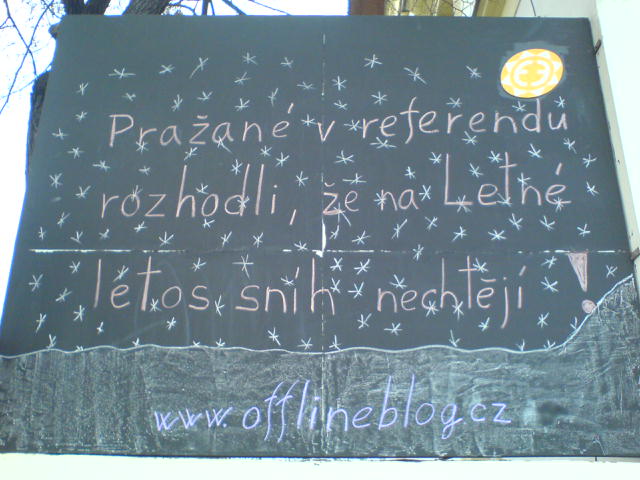 Pražané v referendu
rozhodli, že na Letné
letos sníh nechtějí!
www.offlineblog.cz